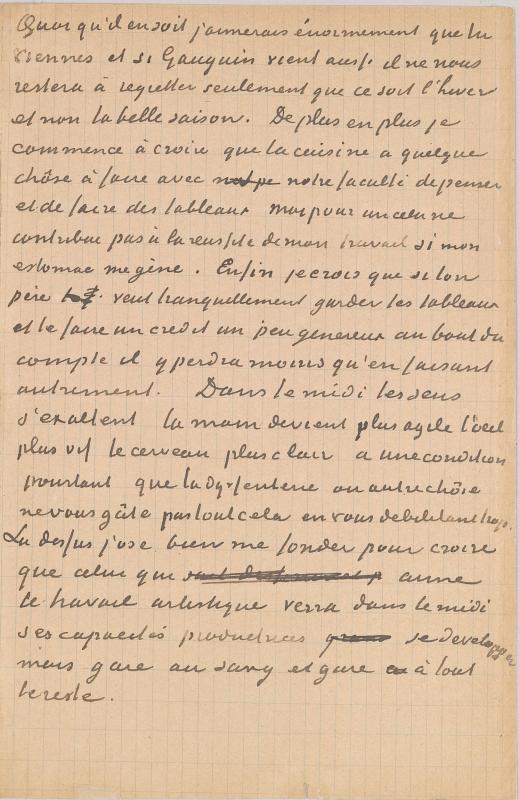 Quoi qu'il en soit j'aimerais énormement que tu
viennes et si Gauguin vient aussi il ne nous
restera à regretter seulement que ce soit l'hiver
et non la belle saison. De plus en plus je
commence à croire que la cuisine a quelque
chôse à faire avec notre faculté de penser
et de faire des tableaux moi pour un cela ne
contribue pas à la reussite de mon travail si mon
estomac me gène. Enfin je crois que si ton
père veut tranquillement garder tes tableaux
et te faire un credit un peu genereux au bout du
compte il y perdra moins qu'en faisant
autrement. Dans le midi les sens
s'exaltent la main devient plus agile l'oeil
plus vif le cerveau plus clair a une condition
pourtant que la dyssenterie ou autre chôse
ne vous gâte pas tout cela en vous debilitant trop.
La dessus j'ose bien me fonder pour croire
que celui qui aime
le travail artistique verra dans le midi
ses capacités productrices se developper
mais gare au sang et gare à tout
le reste.